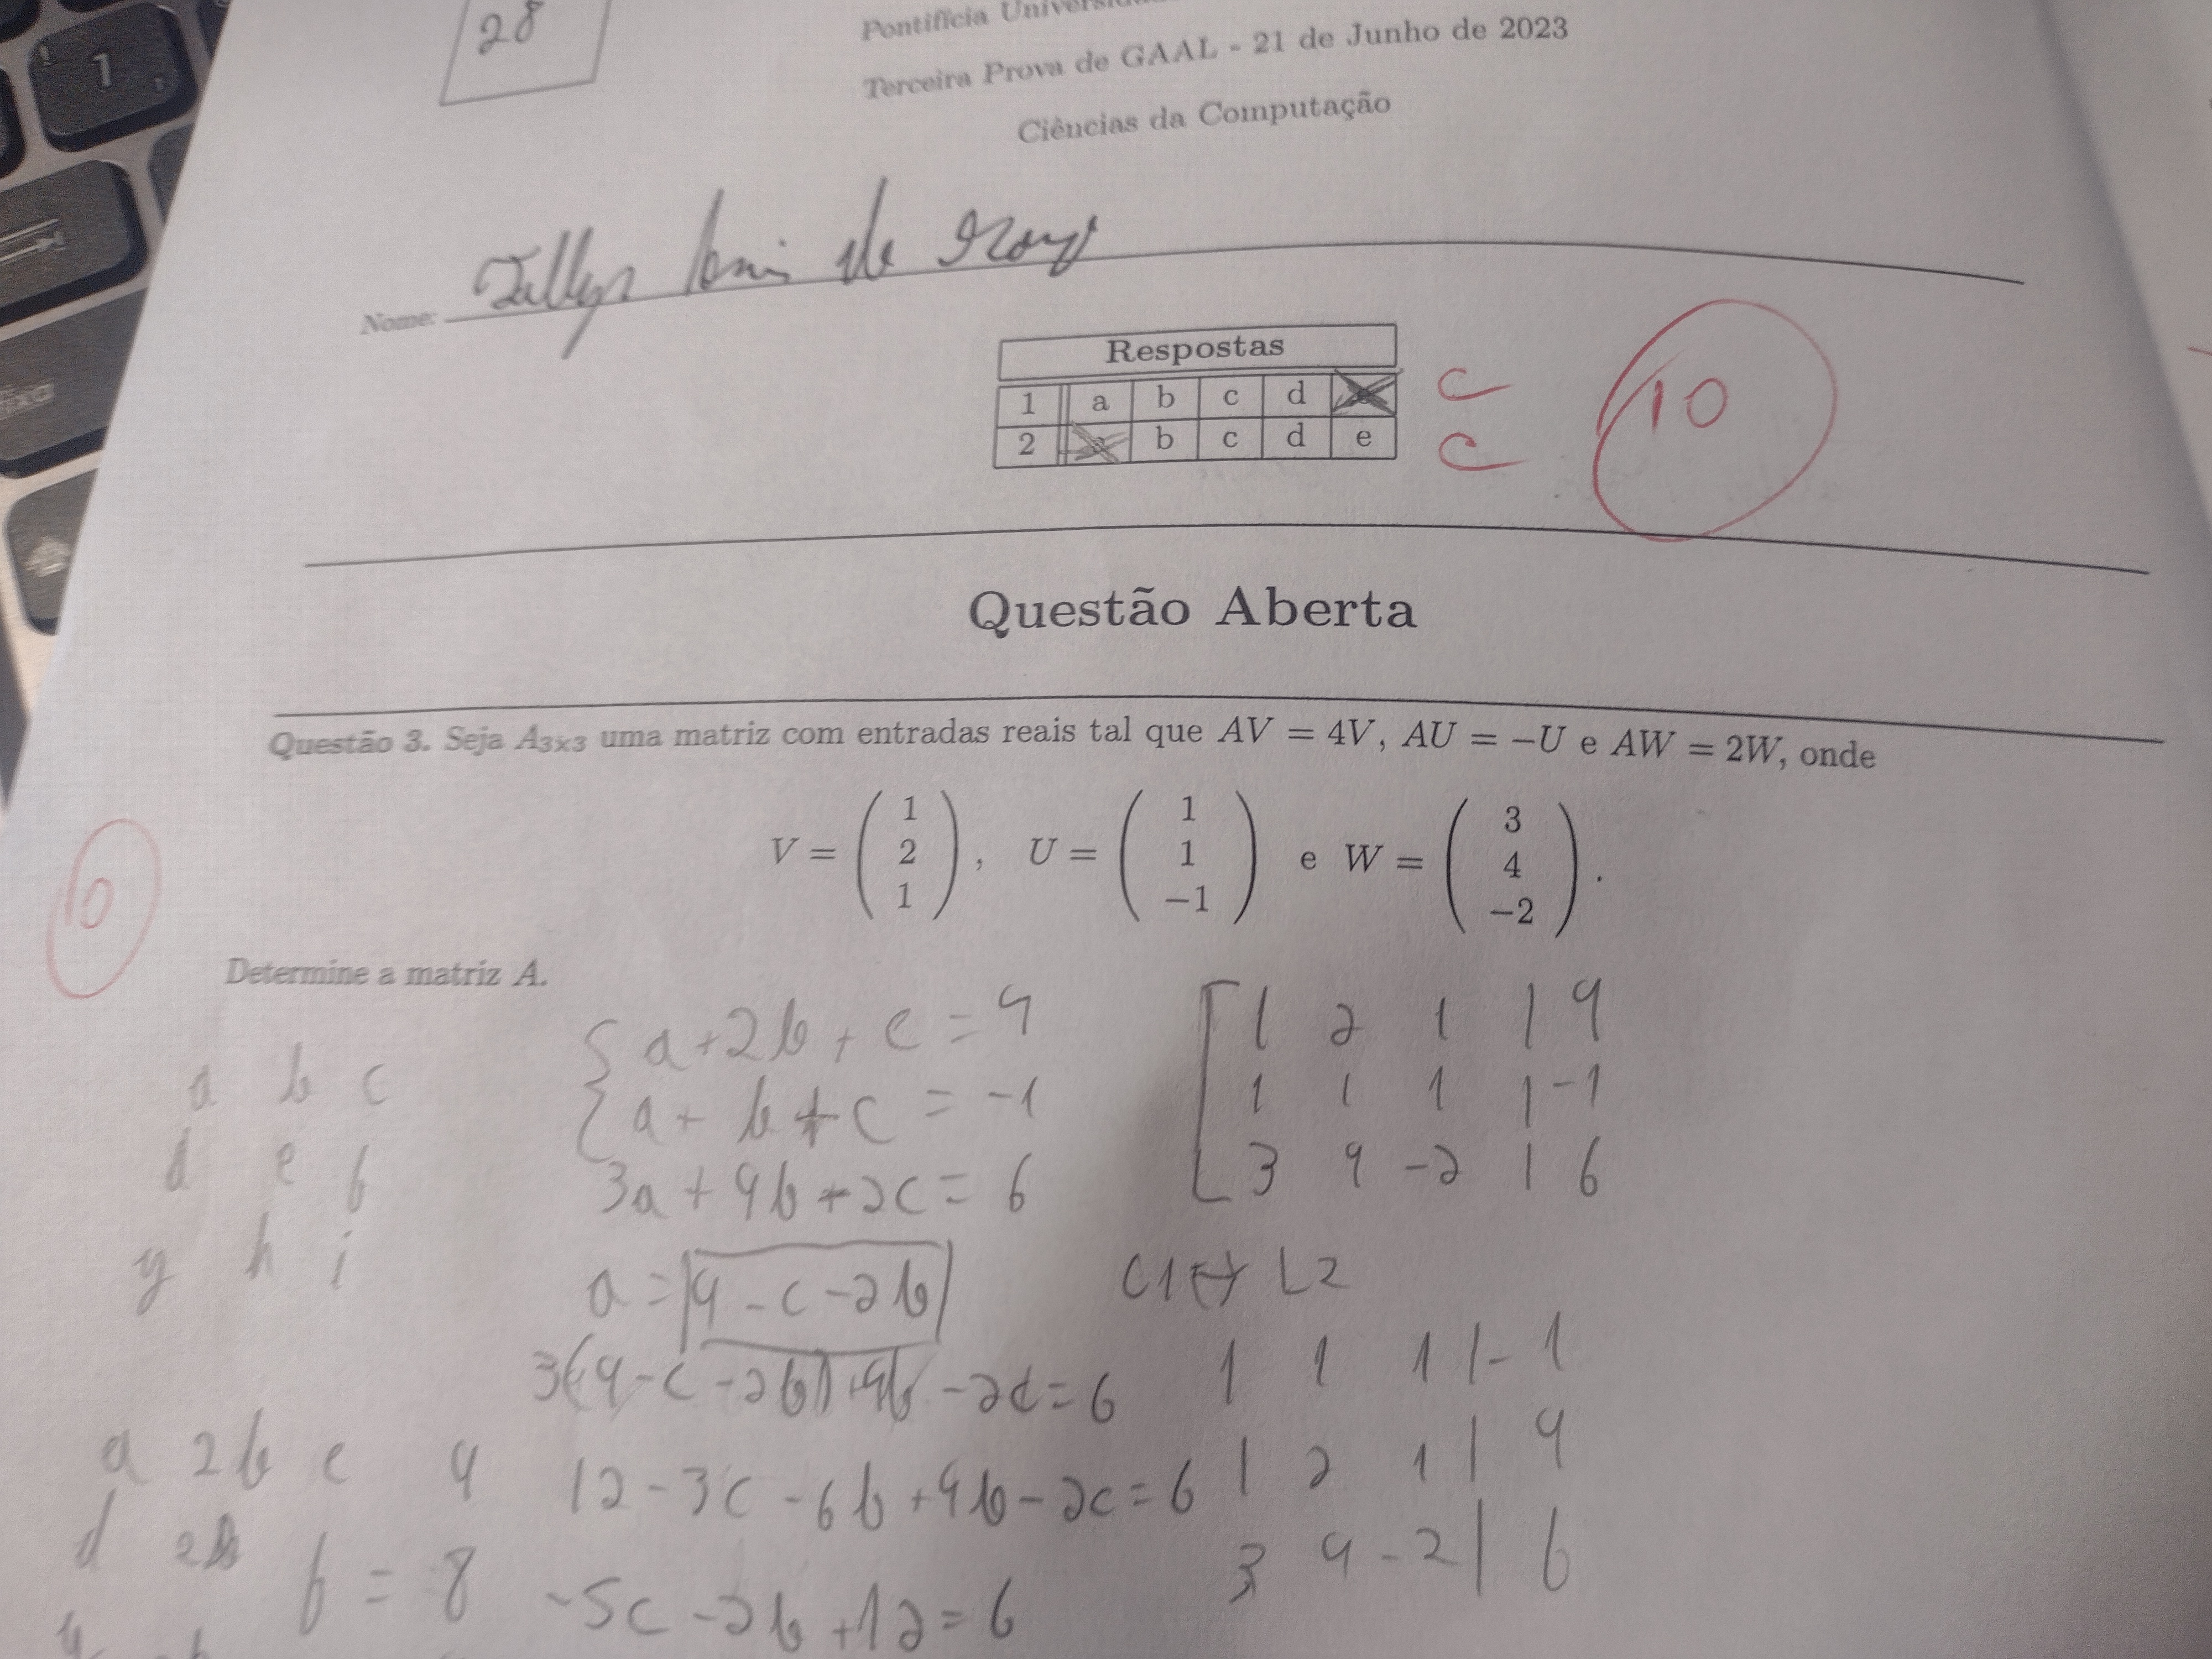 28
Pontifícia
Terceira Prova de GAAL - 21 de Junho de 2023
Ciências da Computação
Nome: de
Respostas
1 a b c d C
2 b c d e C
10
Questão Aberta
Questão 3. Seja A3×3 uma matriz com entradas reais tal que AV = 4V, AU = −U e AW = 2W, onde
V = ( 1 2 1 ), U = ( 1 1 −1 ) e W = ( 3 4 −2 ).
10
Determine a matriz A.
a b c
d e f
g h i
{ a + 2b + c = 4
a + b + c = -1
3a + 4b + 2c = 6
a = 4 - c - 2b
3(4 - c - 2b) + 4b - 2c = 6
12 - 3c - 6b + 4b - 2c = 6
-5c - 2b + 12 = 6
a 2b c 4
d f = 8
[ 1 2 1 | 4
1 1 1 | -1
3 4 -2 | 6
L2
1 1 1 | -1
1 2 1 | 4
3 4 -2 | 6
1